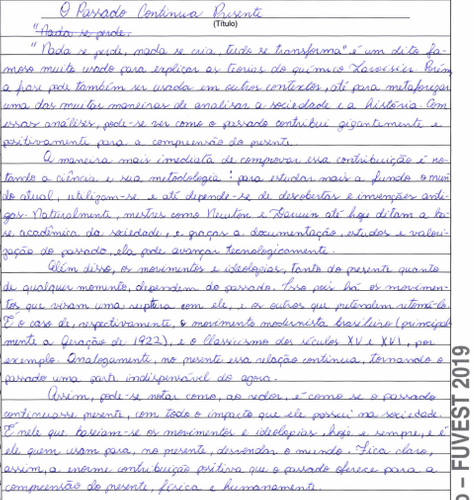 O Passado Continua Presente
(Título)
"Nada se perde,
"Nada se perde, nada se cria, tudo se transforma" é um dito fa-
moso muito usado para explicar as teorias do químico Lavoisier. Porém,
a frase pode também ser usada em outros contextos, até para metaforizar
uma das muitas maneiras de analisar a sociedade e a história. Com
essas análises, pode-se ver como o passado contribui gigantemente e
positivamente para a compreensão do presente.
A maneira mais imediata de comprovar essa contribuição é no-
tando a ciência e sua metodologia: para estudar mais a fundo o mun-
do atual, utilizam-se e até depende-se de descobertas e invenções anti-
gas. Naturalmente, mestres como Newton e Darwin até hoje ditam a ba-
se acadêmica da sociedade, e graças a documentação, estudos e valori-
zação do passado, ela pode avançar tecnologicamente.
Além disso, os movimentos e ideologias, tanto do presente quanto
de qualquer momento, dependem do passado. Isso pois há os movimen-
tos que visam uma ruptura com ele, e os outros que pretendem retomá-lo.
É o caso de, respectivamente, o movimento modernista brasileiro (principal-
mente a Geração de 1922), e o Classicismo dos séculos XV e XVI, por
exemplo. Analogamente, no presente essa relação continua, tornando o
passado uma parte indispensável do agora.
Assim, pode-se notar como, ao redor, é como se o passado
continuasse presente, com todo o impacto que ele possui na sociedade.
É nele que baseiam-se os movimentos e ideologias, hoje e sempre, e é
ele quem usam para, no presente, desvendar o mundo. Fica claro,
assim, a enorme contribuição positiva que o passado oferece para a
compreensão do presente, física e humanamente.
– FUVEST 2019